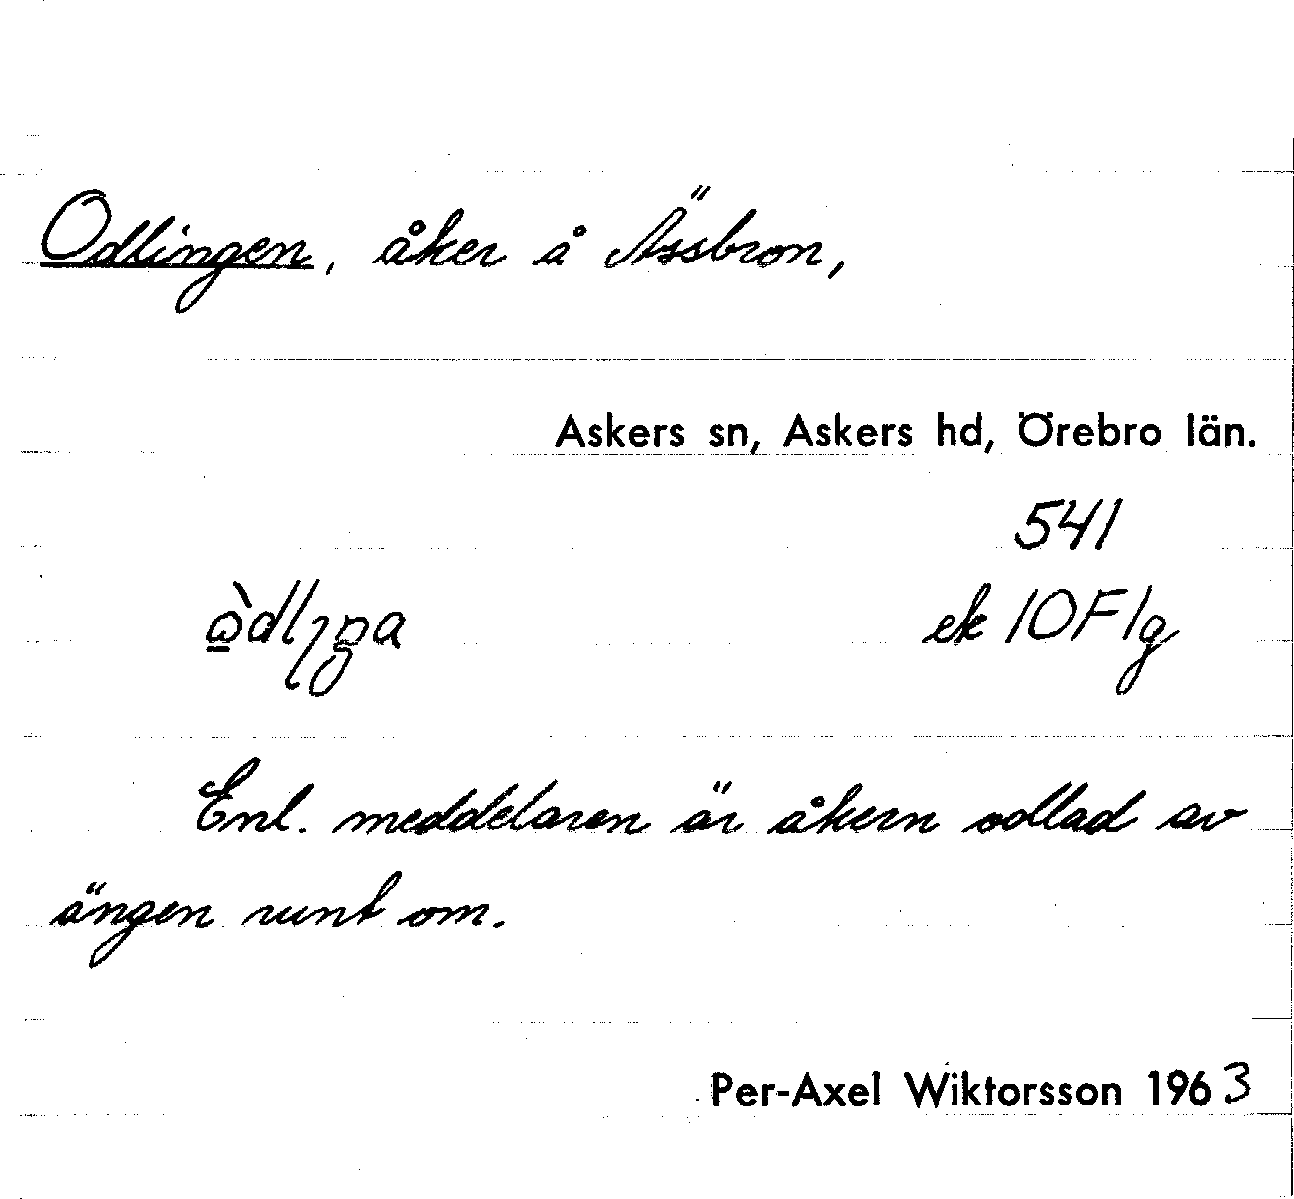 Odlingen, åker å Ässbron,
Askers sn, Askers hd, Örebro län.
541
ek 10F1g
Enl. meddelaren är åkern odlad av
ängen runt om.
Per-Axel Wiktorsson 1963